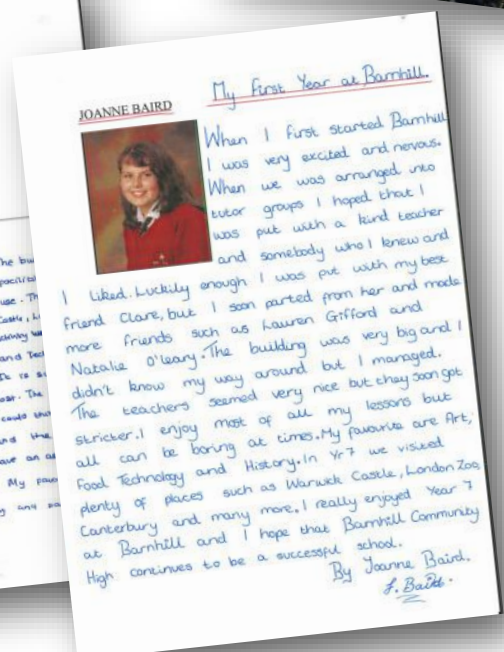 My First Year at Barnhill.
JOANNE BAIRD
When I first started Barnhill
I was very excited and nevous.
When we was arranged into
tutor groups I hoped that I
was put with a kind teacher
and somebody who I knew and
I liked. Luckily enough I was put with my best
friend Clare, but I soon parted from her and made
more friends such as Lauren Gifford and
Natalie O'leary. The building was very big and I
didn't know my way around but I managed.
The teachers seemed very nice but they soon got
stricter. I enjoy most of all my lessons but
all can be boring at times. My favourite are Art,
Food Technology and History. In Yr7 we visited
plenty of places such as Warwick Castle, London Zoo,
Canterbury and many more. I really enjoyed Year 7
at Barnhill and I hope that Barnhill Community
High continues to be a successful school.
By Joanne Baird.
J. Baird.